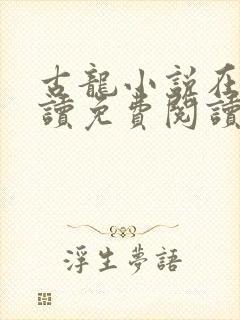 古龍小説在
讀免費閱讀
浮生夢語